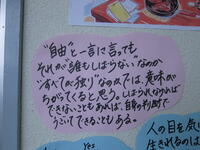 "自由"と一言に言っても
それが"誰もしばらない"なのか
"すべてが独り"なのかでは、意味が
ちがってくると思う。しばられなければ
できないこともあれば、自身の判断で
うごいてできることもある。
Yes
人の目を気に
生きれるのは